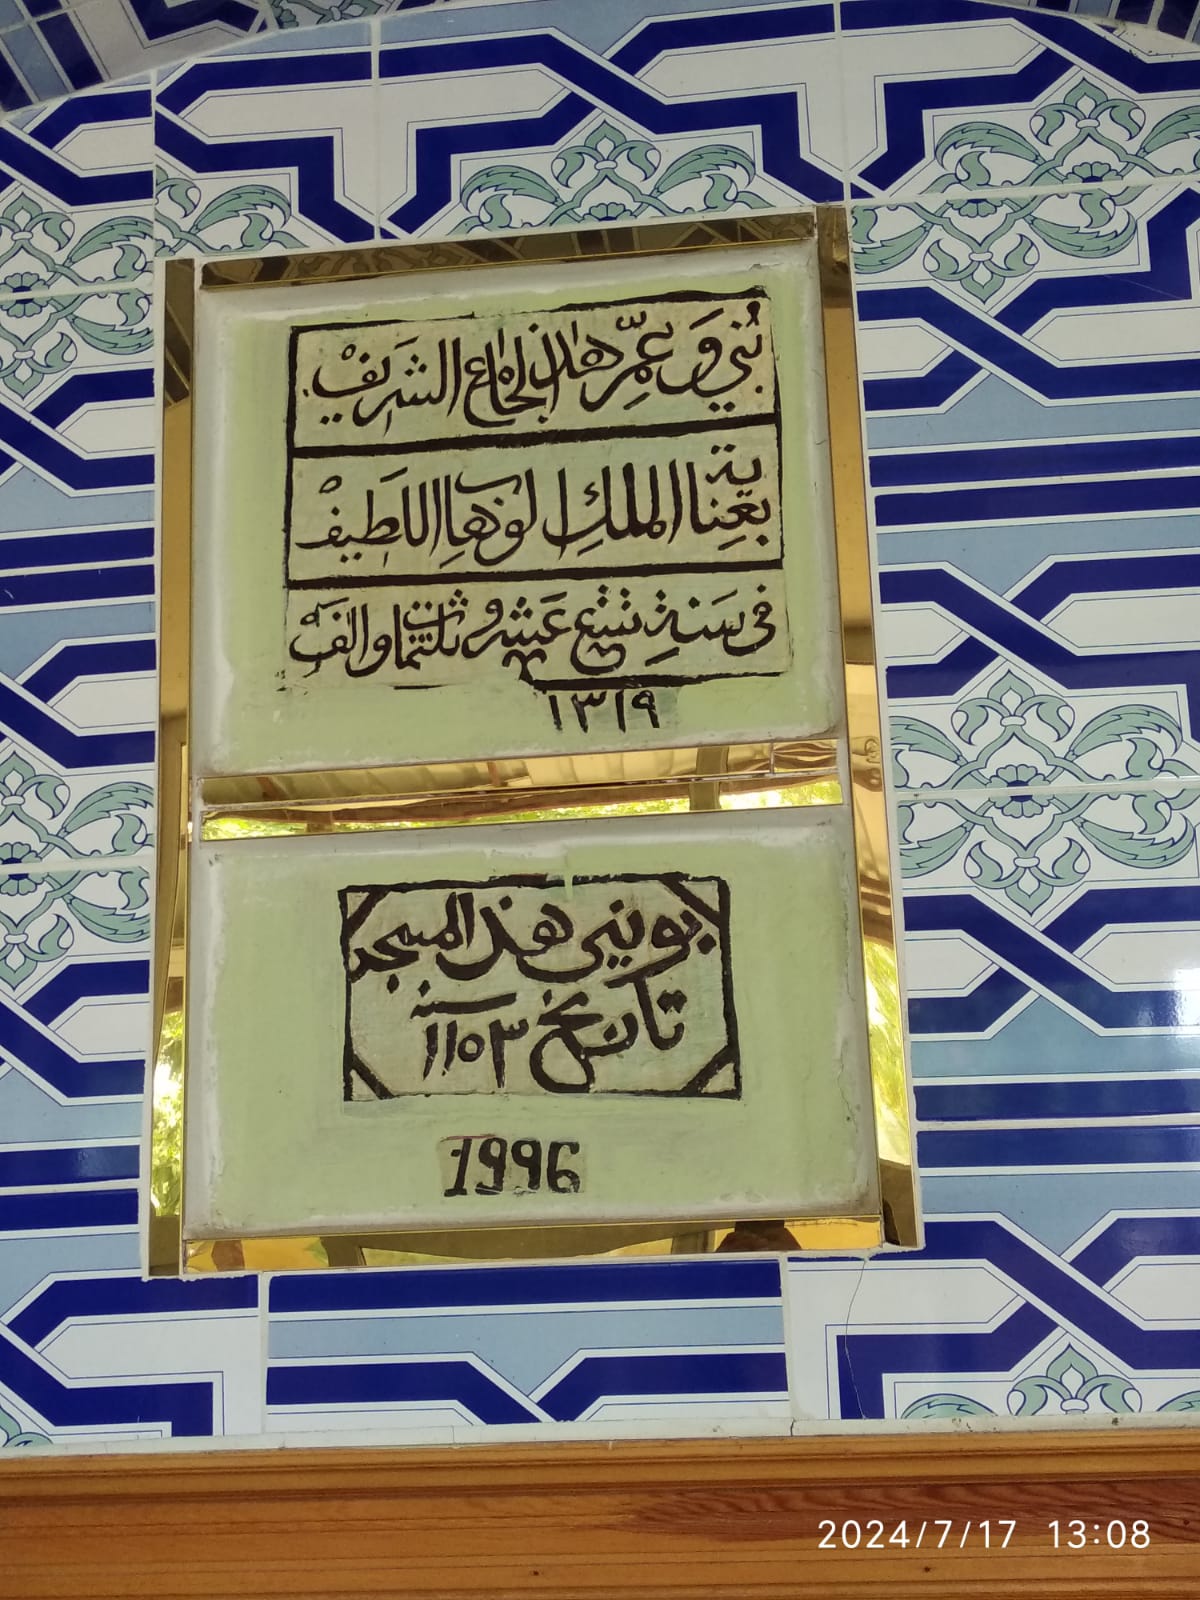 بُنِيَ وَ عُمِّرَ هٰذَا الجَامِعُ الشَرِيفْ
بِعِنَايَةِ المَلِكِ الوَهَابِ اللَطِيفْ
فِى سَنَةِ تِسْعَ عَشَرَ وَ ثَلٰثُمِائَةِ وَ اَلْفْ
١٣١٩
بونيى هذ المسجد
تاريخ سنه ١١٥٣
1996
2024/7/17 13:08